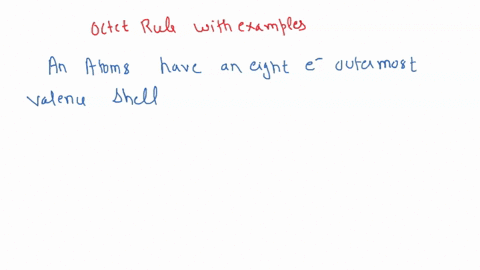 Octet Rule with examples
An Atoms have an eight e⁻ outermost
valence shell